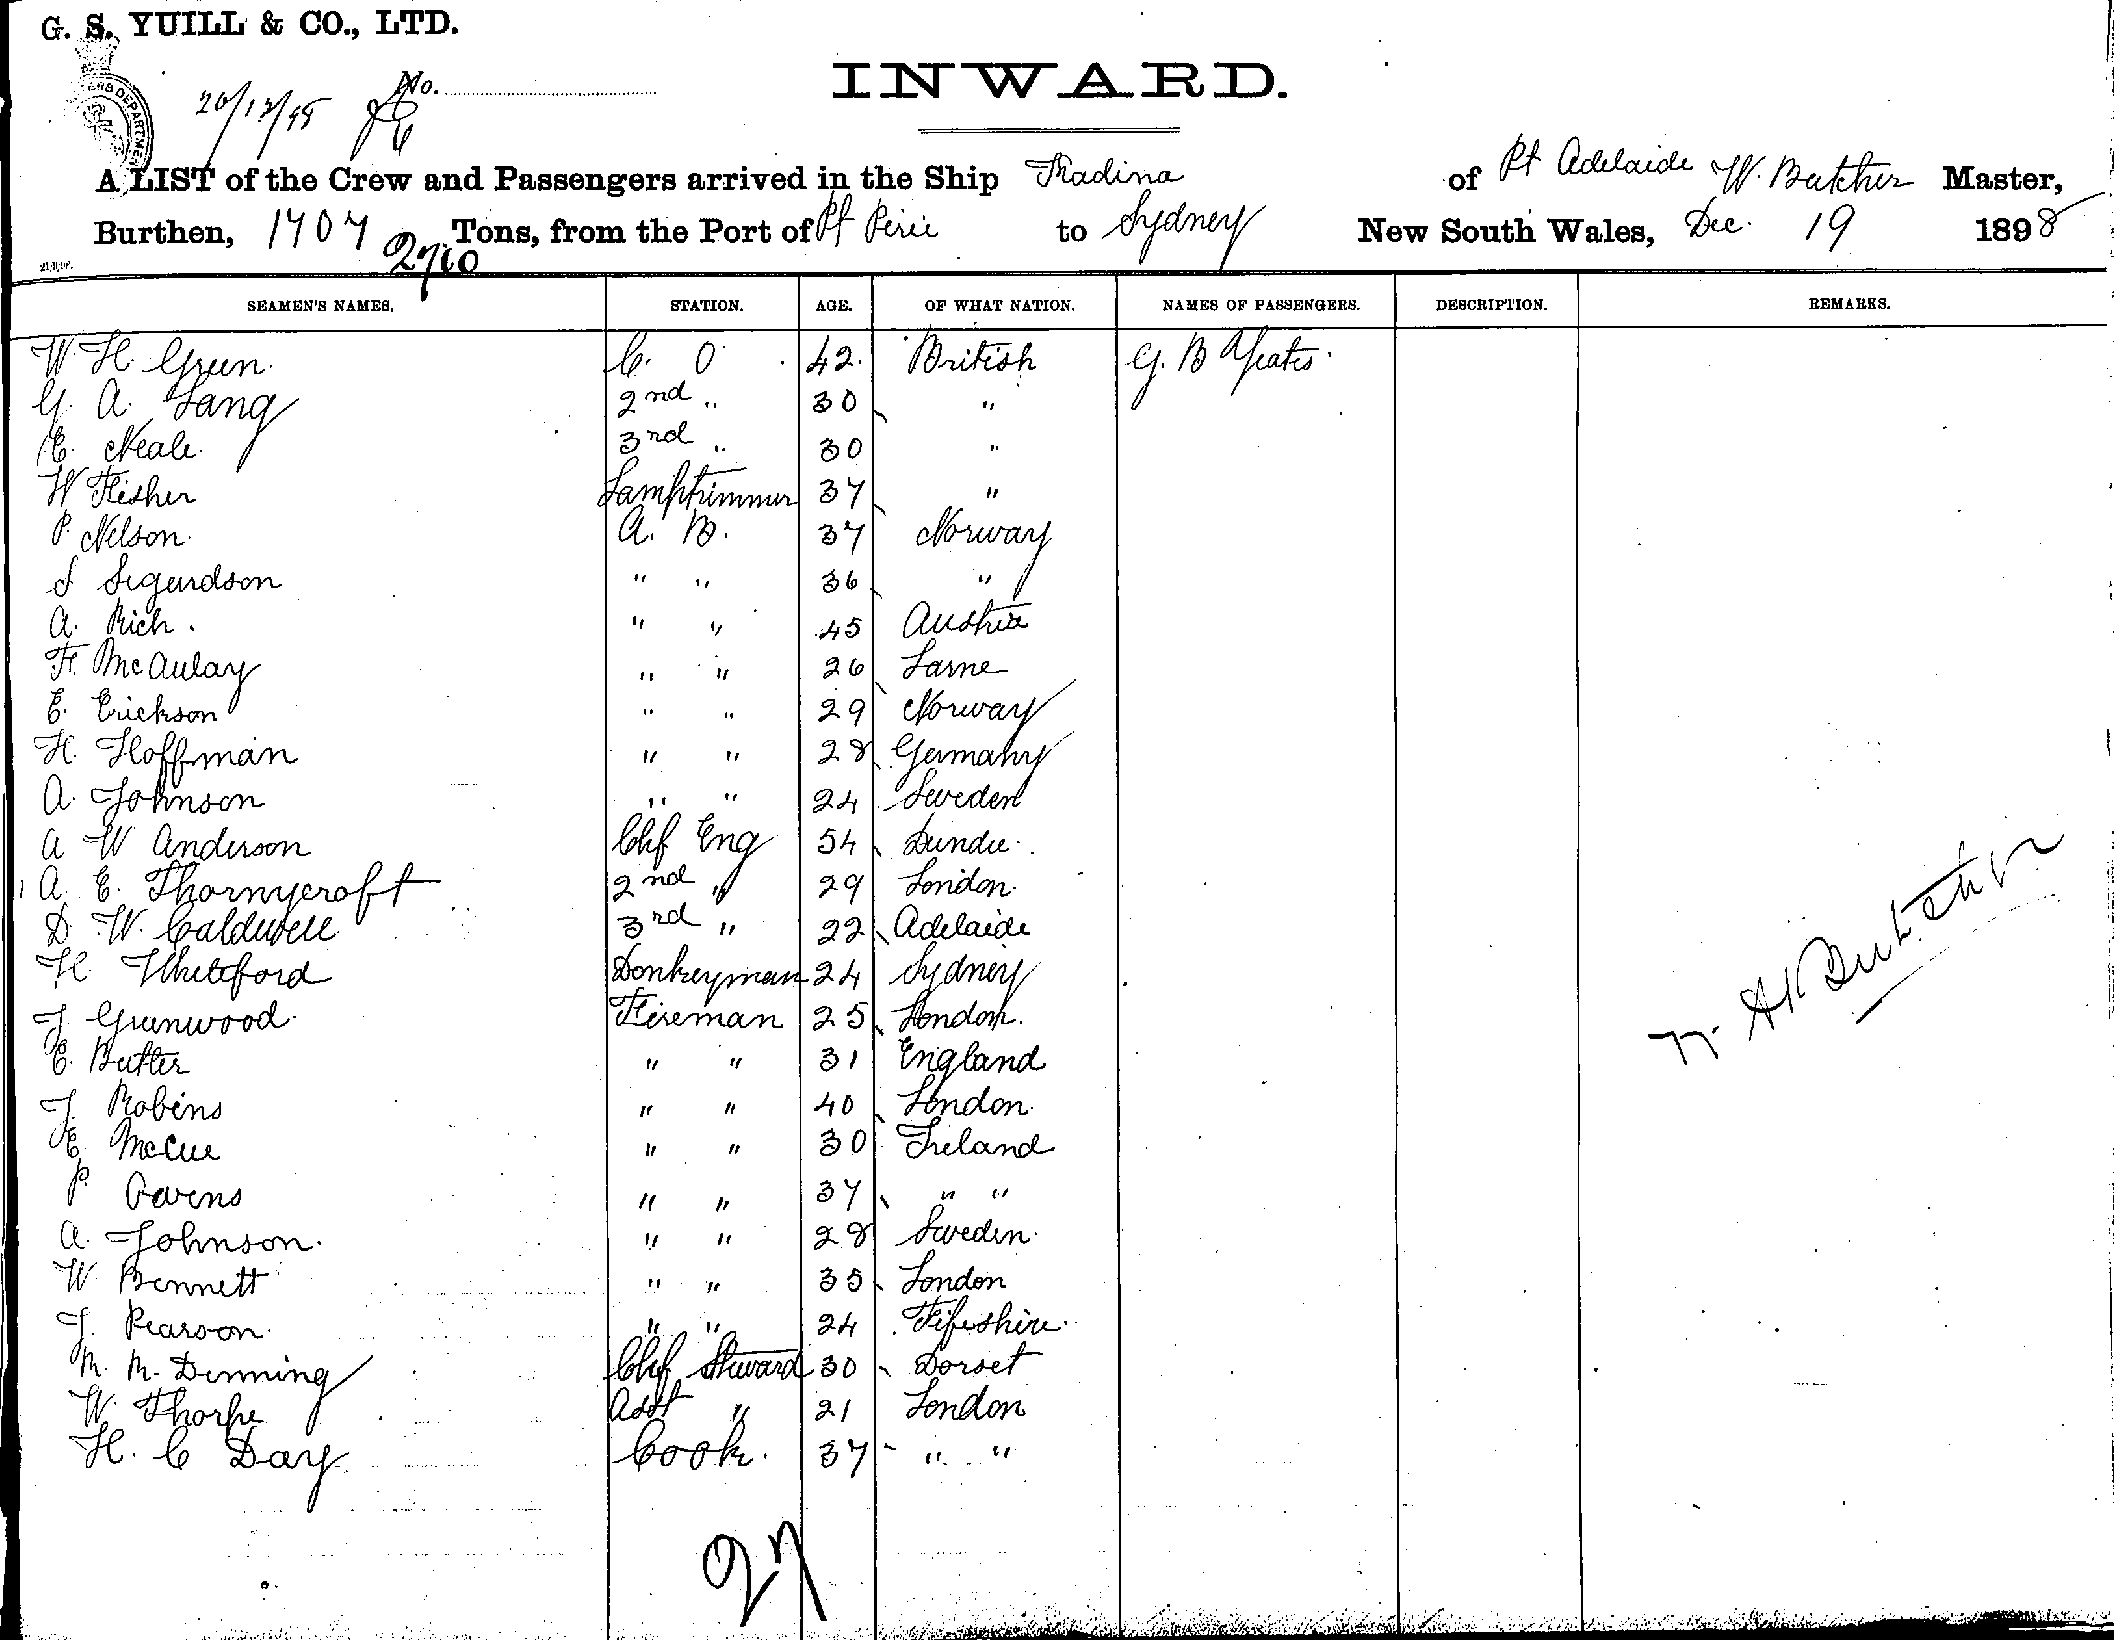 G. S. YUILL & CO., LTD.
INWARD.
No.
20/12/98
A LIST of the Crew and Passengers arrived in the Ship Tradina of Pt Adelaide W. Butcher Master,
Burthen, 1707 Tons, from the Port of Pt Pirie to Sydney New South Wales, Dec. 19 1898
2710
SEAMEN'S NAMES. STATION. AGE. OF WHAT NATION. NAMES OF PASSENGERS. DESCRIPTION. REMARKS.
W. H. Green. C. O. 42. British G. B Yeates.
G. A. Lang 2nd " 30 "
E. Neale. 3rd " 30 "
W Fisher Lamptrimmer 37 "
P. Nelson. A. B. 37 Norway
S Sigurdson " " 36 "
A. Rich. " " 45 Austria
F. McAulay " " 26 Larne
E. Erickson " " 29 Norway
H. Hoffman " " 28 Germany
A. Johnson " " 24 Sweden
A W Anderson Chf Eng 54 Dundee.
A. E. Thornycroft 2nd " 29 London.
D. W. Caldwell 3rd " 22 Adelaide
H Whiteford Donkeyman 24 Sydney
J Greenwood. Fireman 25 London.
C. Butler " " 31 England
J. Robins " " 40 London.
E. McCue " " 30 Ireland
P. Owens " " 37 " "
A. Johnson. " " 28 Sweden.
W Bennett " " 35 London
J. Pearson. " " 24 Fifeshire.
M. M. Denning Chf Steward 30 Dorset
W. Thorpe Asst " 21 London
H. C Day Cook. 37 " "
W. H Butcher
27